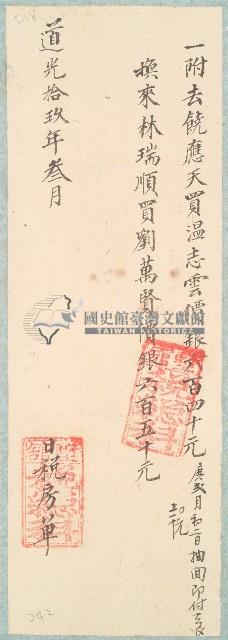 一附去饒應天買溫志雲價銀六百四十元
庚弍月初二日抽回即付
換來林瑞順買劉萬賢價銀六百五十元
道光拾玖年叁月
日稅房單
國史館臺灣文獻館
TAIWAN HISTORICA